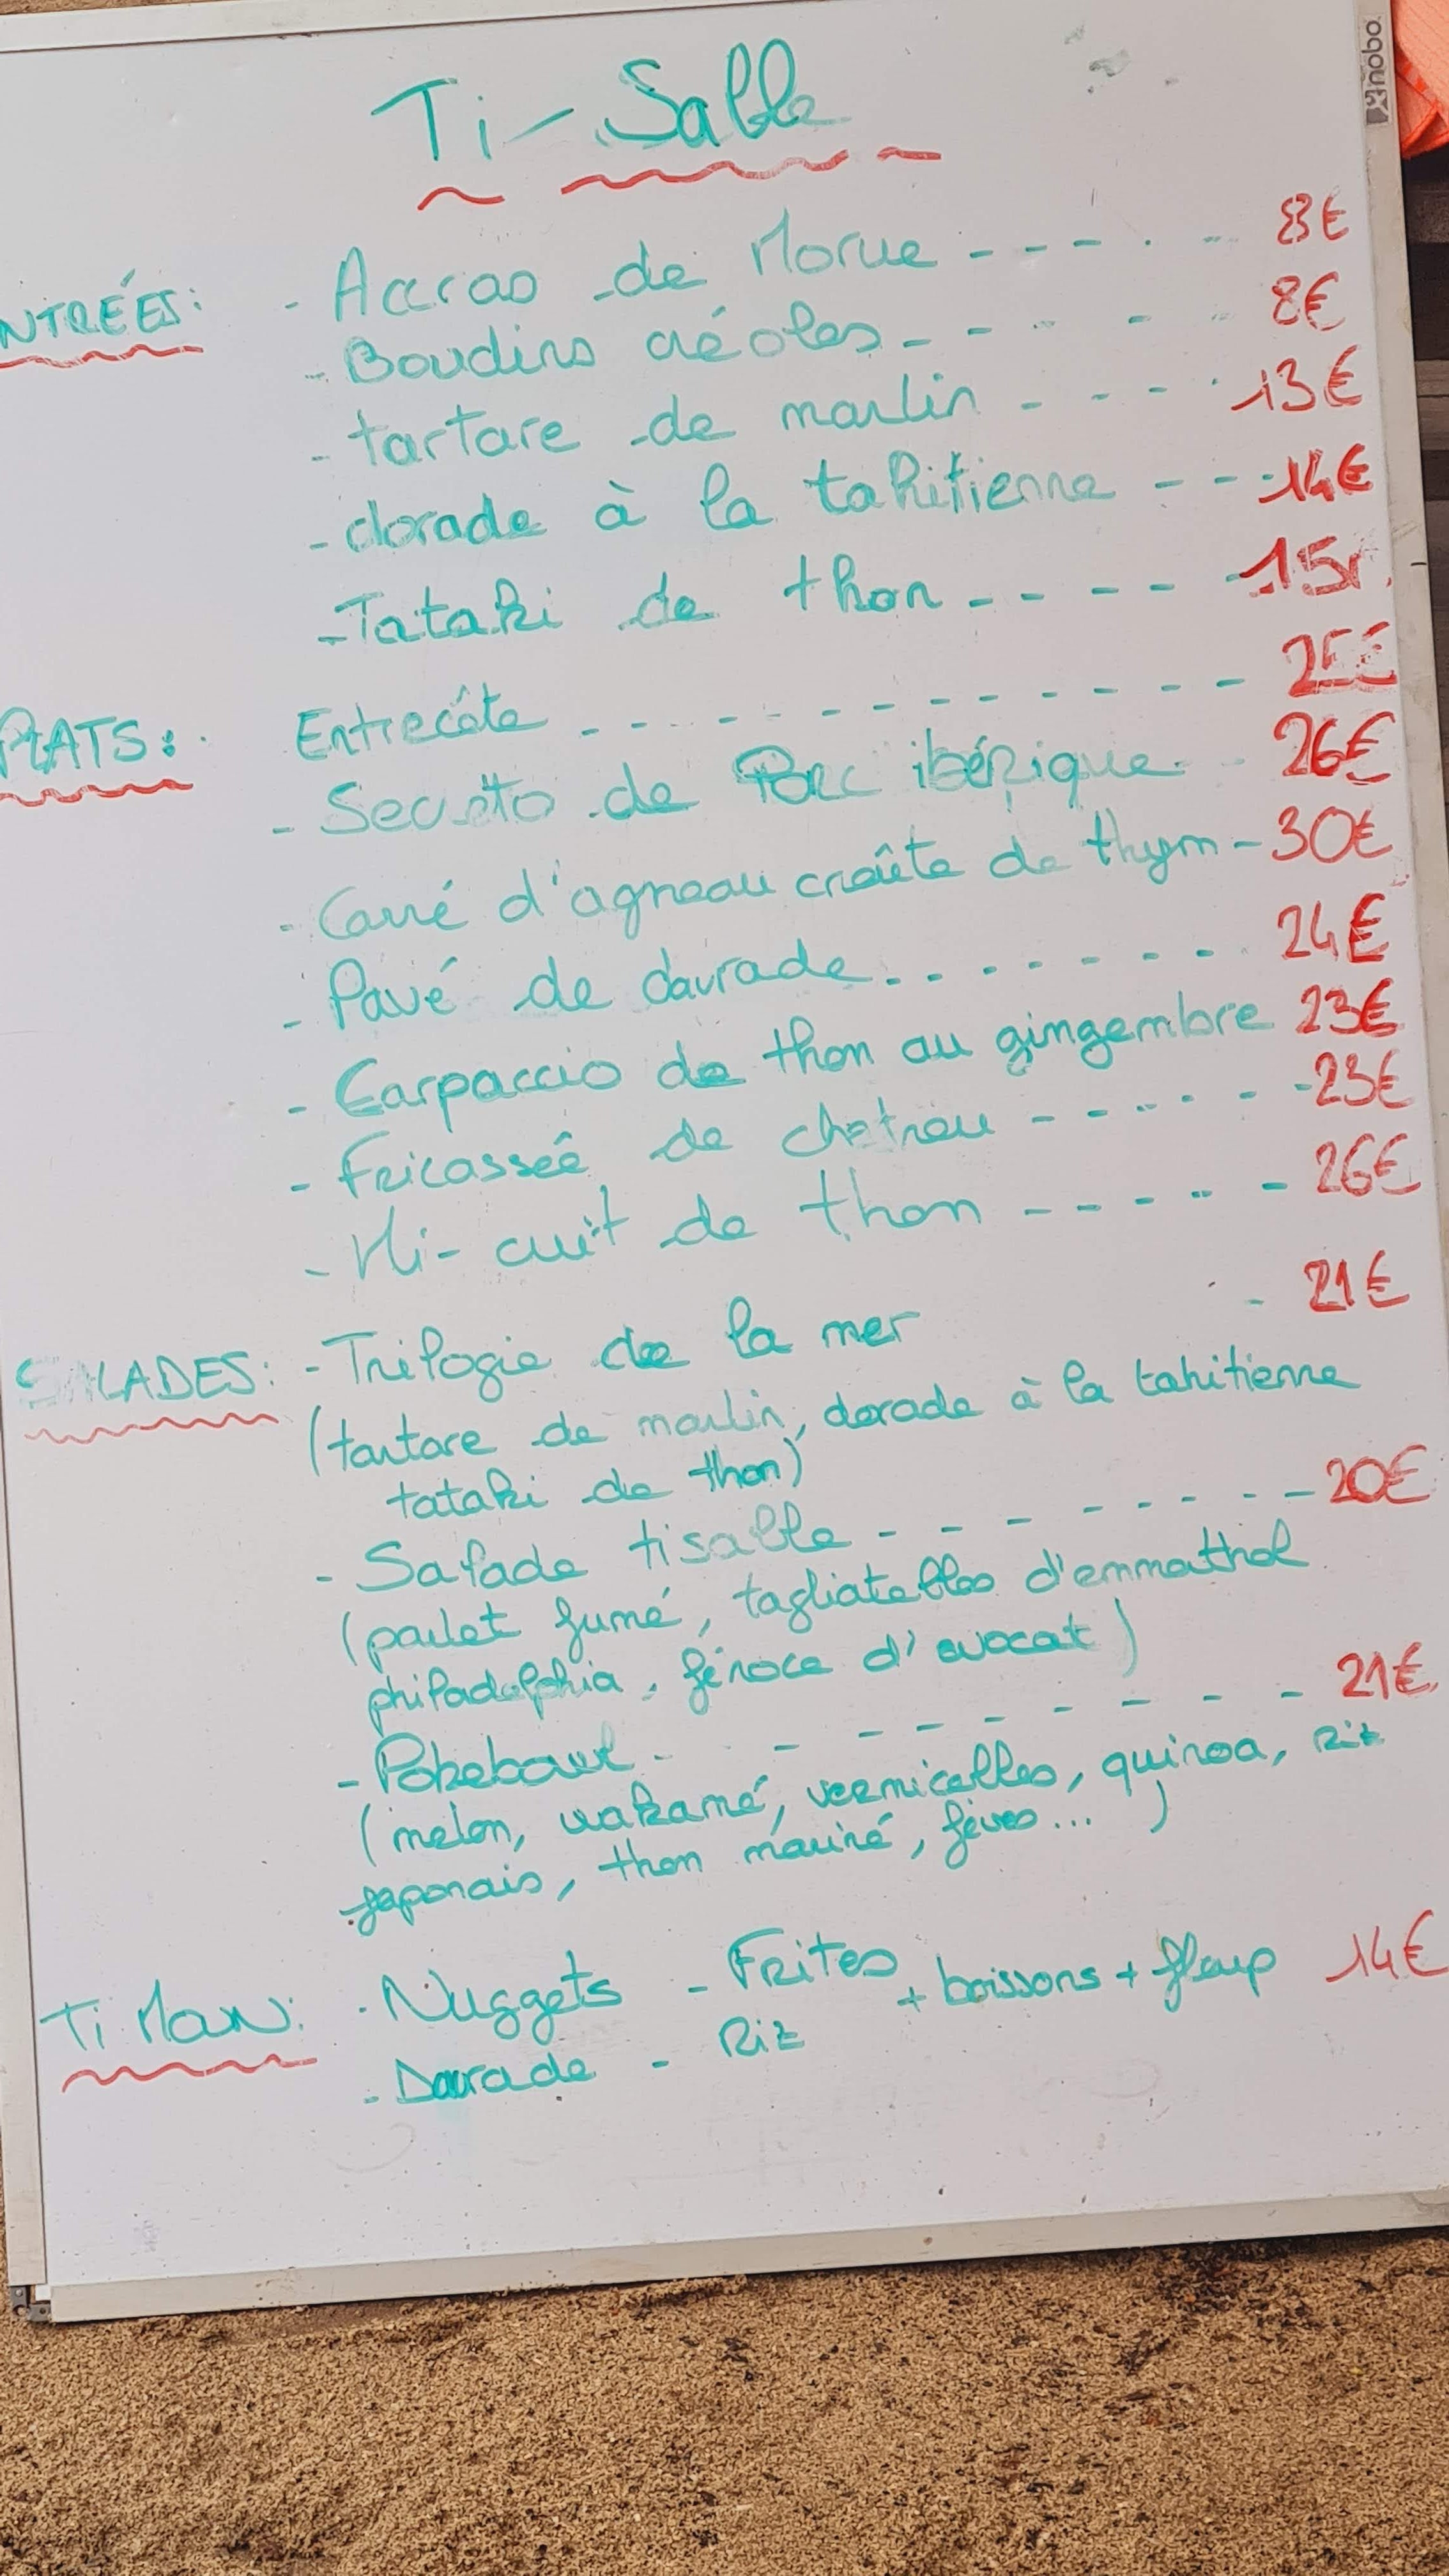 nobo
Ti-Sable
NTRÉES: - Accras de Morue - - - - - 8€
- Boudins créoles - - - - - 8€
- tartare de marlin - - - - 13€
- dorade à la tahitienne - - - 14€
- Tataki de thon - - - - - 15
PLATS: Entrecôte - - - - - - - - - - 25€
- Secreto de Porc ibérique - - 26€
- Carré d'agneau croûte de thym - 30€
- Pavé de daurade - - - - - - - 24€
- Carpaccio de thon au gingembre 23€
- Fricassée de chatrou - - - - - - 23€
- Mi-cuit de thon - - - - - 26€
SALADES: - Trilogie de la mer - 21€
(tartare de marlin, dorade à la tahitienne
tataki de thon)
- Salade tisable - - - - - - - - 20€
(poulet fumé, tagliatelles d'emmathal
philadelphia, féroce d'avocat)
- Pokebowl - - - - - - - - - 21€
(melon, wakamé, vermicelles, quinoa, Riz
japonais, thon mariné, fèves...)
Ti Moun: - Nuggets - Frites + boissons + flup 14€
- Daurade - Riz